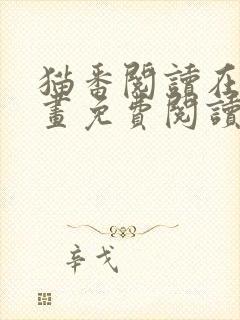 猫番閱讀在
畫免費閱讀
辛戈